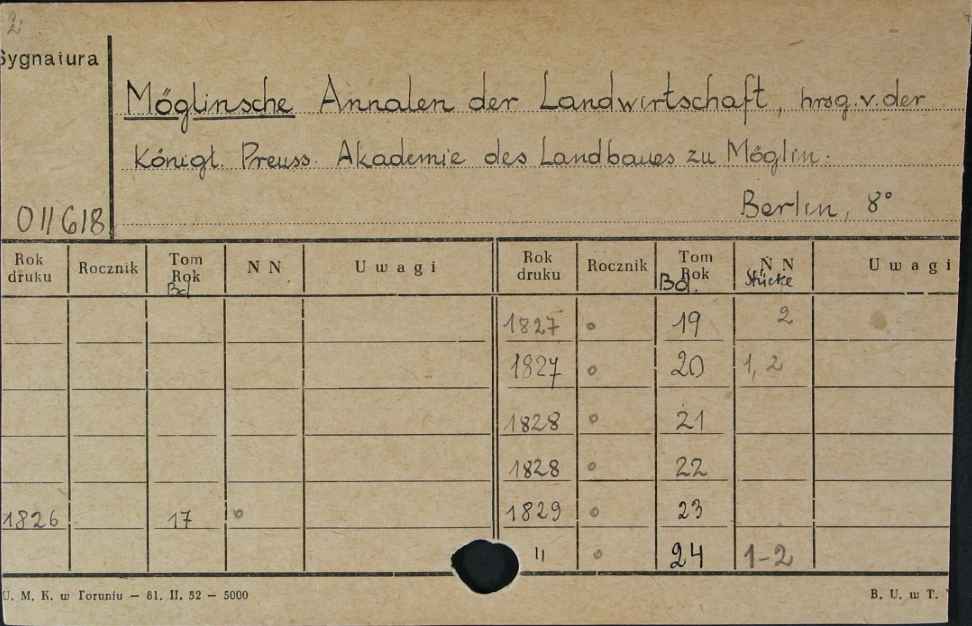 2.
Sygnatura
Möglinsche Annalen der Landwirtschaft, hrsg. v. der
Königl. Preuss. Akademie des Landbaues zu Möglin.
Berlin, 8°
011618
Rok druku Rocznik Tom Rok Bd. N N Uwagi Rok druku Rocznik Tom Rok Bd. N N Stücke Uwagi
1827 ° 19 2
1827 ° 20 1, 2
1828 ° 21
1828 ° 22
1826 17 ° 1829 ° 23
" ° 24 1-2
U. M. K. w Toruniu — 81. II. 52 — 5000
B. U. w T.